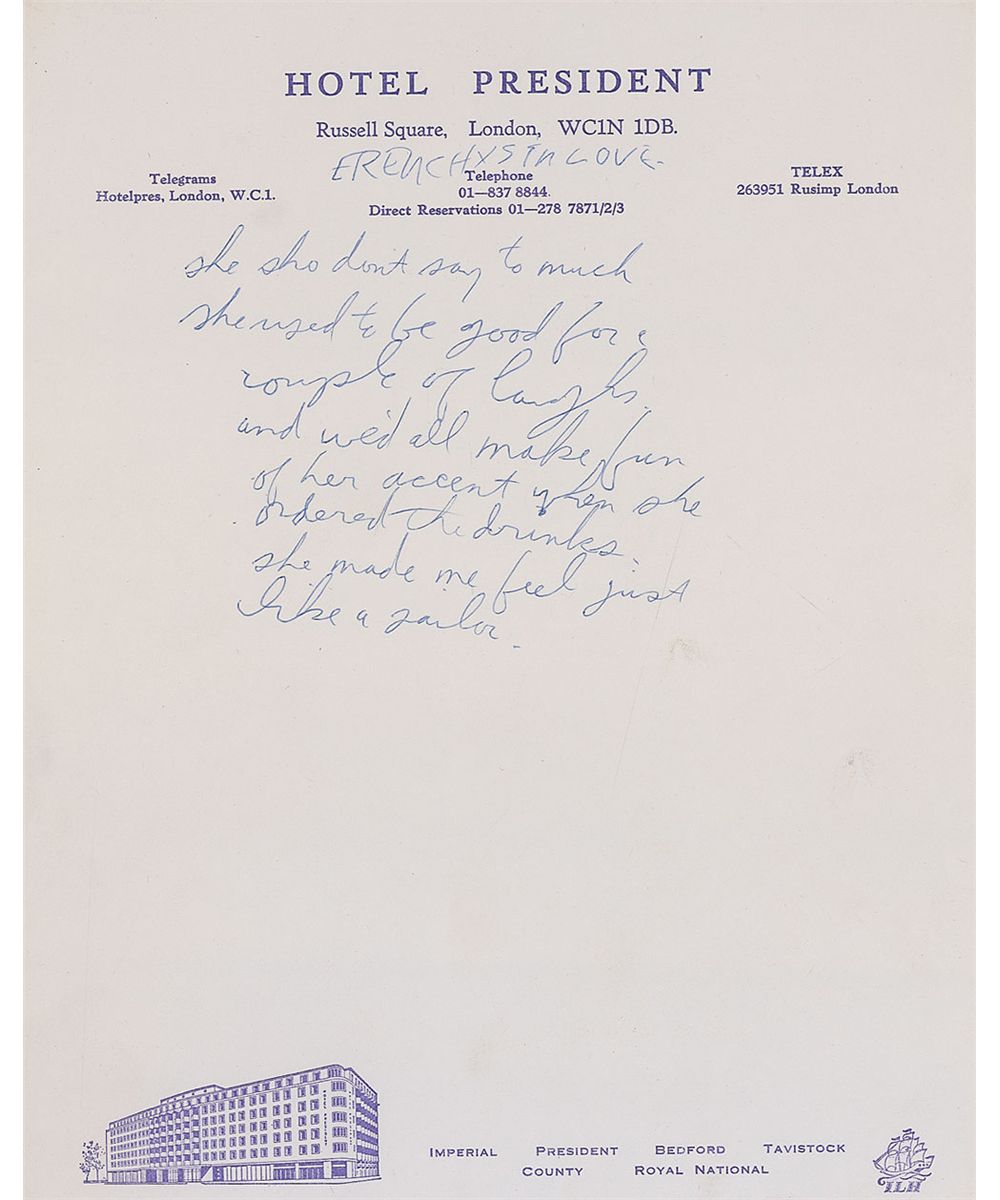 HOTEL PRESIDENT
Russell Square, London, WC1N 1DB.
FRENCHYS In LOVE.
Telegrams
Hotelpres, London, W.C.1.
Telephone
01—837 8844.
Direct Reservations 01—278 7871/2/3
TELEX
263951 Rusimp London
she sho dont say to much
she used to be good for a
couple of laughs.
and we'd all make fun
of her accent when she
ordered the drinks.
she made me feel just
like a sailor.
HOTEL PRESIDENT
IMPERIAL PRESIDENT BEDFORD TAVISTOCK
COUNTY ROYAL NATIONAL
ILH